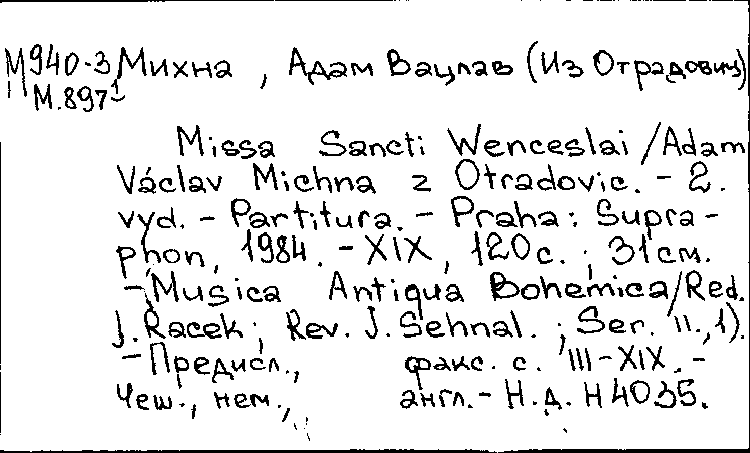 М940-3 Михна, Адам Вацлав (Из Отрадовиц)
М.897
Missa Sancti Wenceslai / Adam
Václav Michna z Otradovic. - 2.
vyd. - Partitura. - Praha: Supra-
phon, 1984. - XIX, 120 с.; 31 см.
- (Musica Antiqua Bohemica / Red.
J. Racek; Rev. J. Sehnal.; Ser. II., 1).
- Предисл., факс. с. III-XIX. -
Чеш., нем., англ. - Н.д. H 4035.